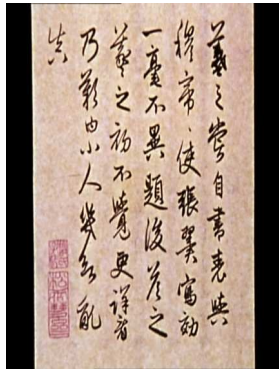 羲之常自書表與
穆帝、使張翼寫効
一毫不異題後答之
羲之初不覺更詳看
乃歎曰小人幾欲亂
真